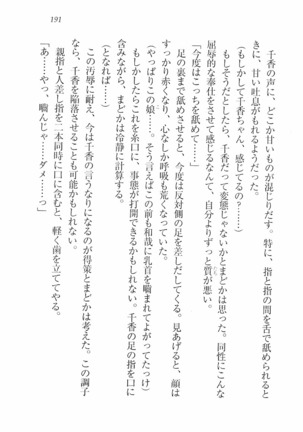 191
千香の声に、どこか甘いものが混じりだす。特に、指と指の間を舌で舐められると
きに、甘い吐息がもれるようだった。
(もしかして千香ちゃん、感じてるの……)
もしそうだとしたら、千香だって変態じゃないかとまどかは思った。同性にこんな
屈辱的な奉仕をさせて感じるなんて、自分よりずっと質が悪い。
「今度はこっちを舐めて……」
足の裏まで舐めさせると、今度は反対側の足を差しだしてくる。見あげると、顔は
すっかり赤くなり、心なしか呼吸も荒くなっていた。
(やっぱりこの娘……。そう言えばこの前も和哉に乳首を嚙まれてよがってたっけ)
もしかしたらこれを糸口に、事態が打開できるかもしれない。千香の足の指を口に
含みながら、まどかは冷静に計算する。
この汚辱に耐え、今は千香の言うなりになるのが得策とまどかは考えた。この調子
なら、千香を陥落させることができるかもしれない。
親指と人差し指を二本同時に口に含むと、軽く歯を立ててやる。
「あ……やっ、嚙んじゃ……ダメ……っ」